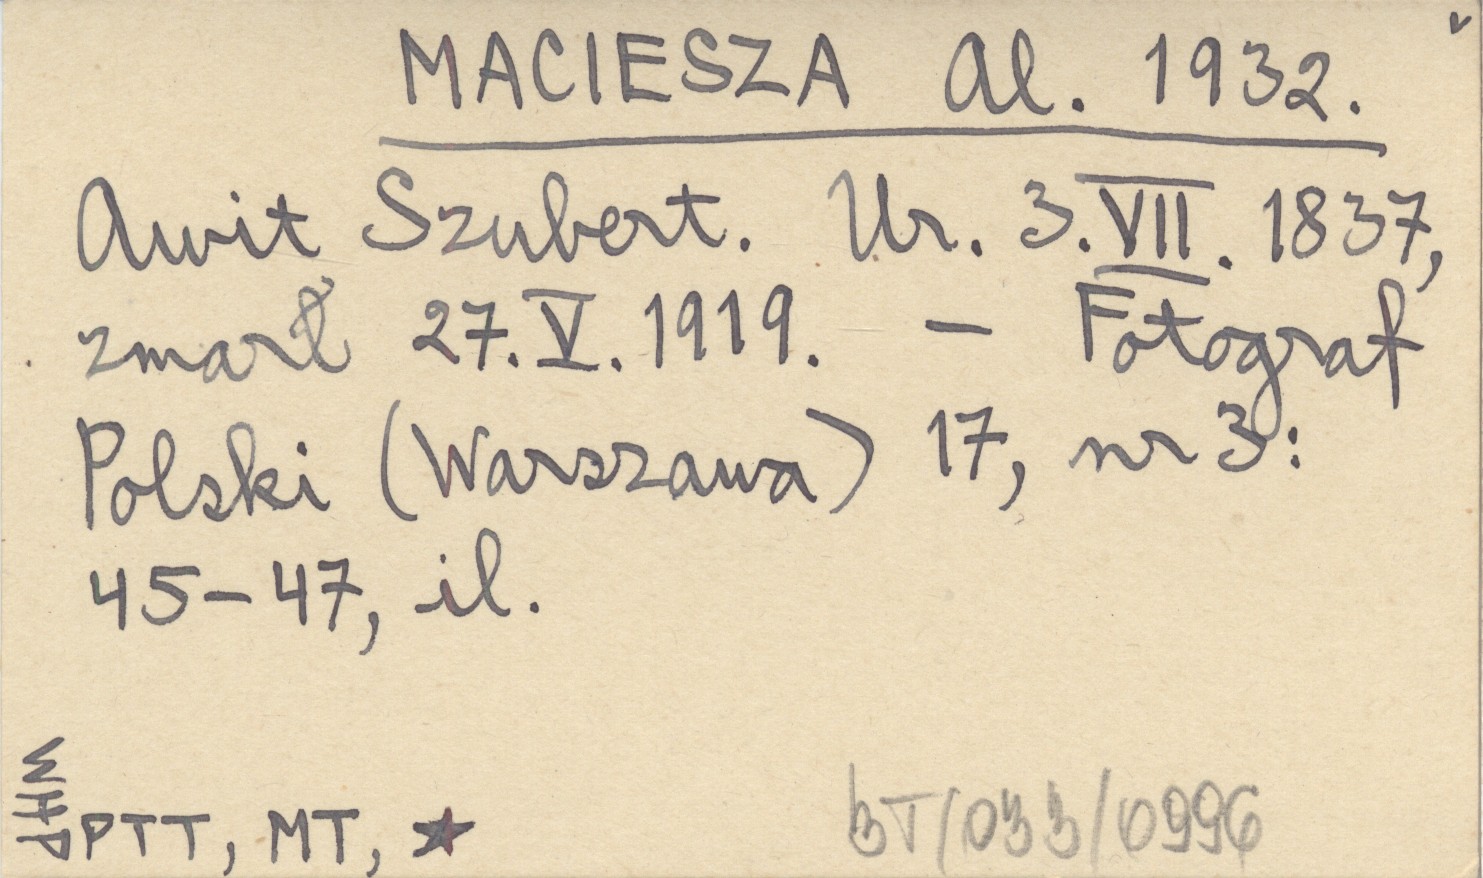 MACIESZA Al. 1932.
Awit Szubert. Ur. 3.VII.1837,
zmarł 27.V.1919. – Fotograf
Polski (Warszawa) 17, nr 3:
45–47, il.
WHP
PTT, MT, ★
BT/033/0996